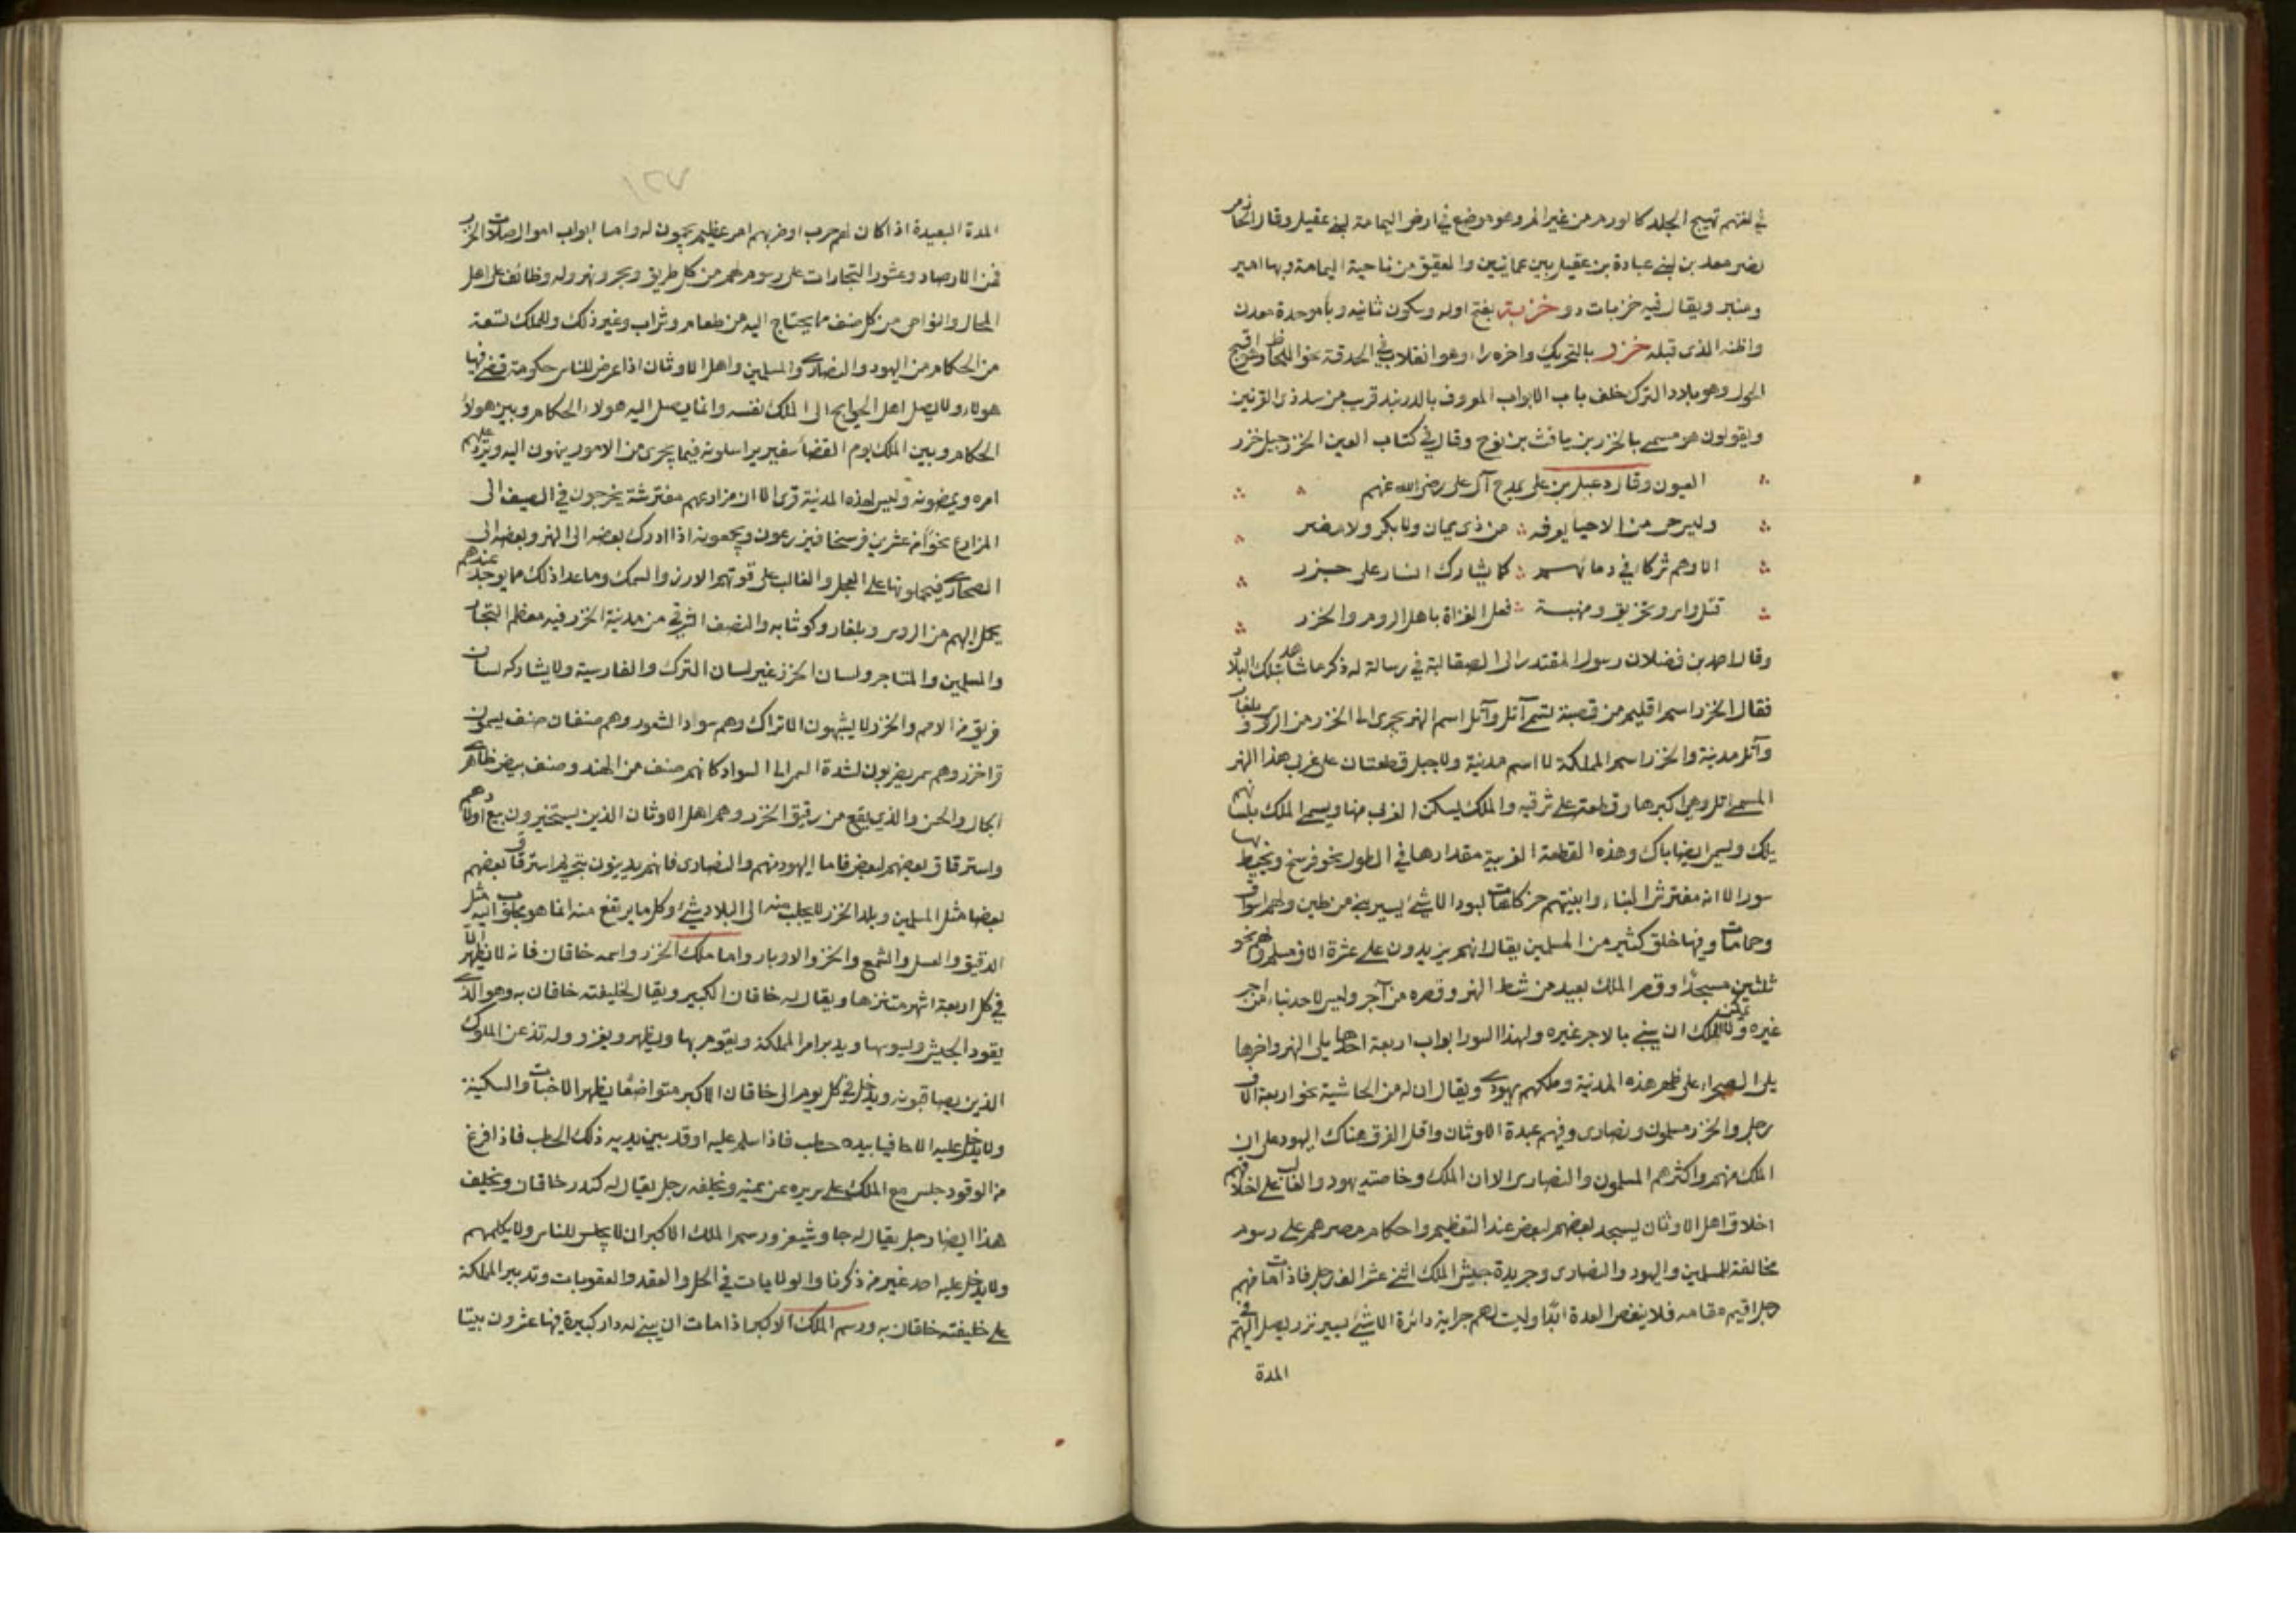 في لغتهم تهيج الجلد كالورم من غير الم وهو موضع في ارض اليمامة لبني عقيل وقال الحازمي
لبني عبادة بن عقيل بين عمايتين والعقيق من ناحية اليمامة وبها امير
ومنبر ويقال فيه خزبات دو خزبة بفتح اوله وسكون ثانيه وباء موحدة معدن
واظنه الذي قبله خزر بالتحريك واخره راء وهو انقلاب في الحدقة نحو اللحاظ وهو اقبح
الحول وهو بلاد الترك خلف باب الابواب المعروف بالدربند قريب من سد ذي القرنين
ويقولون هو مسمى بالخزر بن يافث بن نوح وقال في كتاب العين الخزر جيل خزر
العيون وقال دعبل بن علي يمدح آل علي رضي الله عنهم
وليس حي من الاحيا يعرفه من ذي يمان ولا بكر ولا مضر
الا وهم شركا في دمائهم كما يشارك ايسار على جزر
قتل واسر وتحريق ومنهبة فعل الغزاة باهل الروم والخزر
وقال احمد بن فضلان رسول المقتدر الى الصقالبة في رسالة له ذكر ما شاهد بتلك البلاد
فقال الخزر اسم اقليم من قصبة تسمى آتل وآتل اسم النهر يجري الى الخزر من الروس وبلغار
وآتل مدينة والخزر اسم المملكة لا اسم مدينة والاتل قطعتان على غربي هذا النهر
المسمى اتل وهي اكبرها وقطعة على شرقيه والملك يسكن الغربي منها ويسمى الملك بلسانهم
يلك ويسمى ايضا باك وهذه القطعة الغربية مقدارها في الطول نحو فرسخ ويحيط بها
سور الا انه مفترش البناء وابنيتهم خركاهات لبود الا شئ يسير بني من طين ولهم اسواق
وحمامات وفيها خلق كثير من المسلمين يقال انهم يزيدون على عشرة الاف مسلم ولهم نحو
ثلثين مسجدا وقصر الملك بعيد من شط النهر وقصره من آجر وليس لاحد بناء من اجر
غيره ولا يمكن الملك ان يبني بالاجر غيره ولهذا السور ابواب اربعة احدها يلي النهر واخرها
يلي الصحراء على ظهر هذه المدينة وملكهم يهودي ويقال ان له من الحاشية نحو اربعة الاف
رجل والخزر مسلمون ونصارى وفيهم عبدة الاوثان واقل الفرق هناك اليهود على ان
الملك منهم واكثرهم المسلمون والنصارى الا ان الملك وخاصته يهود والغالب على اخلاقهم
اخلاق اهل الاوثان يسجد بعضهم لبعض عند التعظيم واحكام مصرهم على رسوم
مخالفة للمسلمين واليهود والنصارى وجريدة جيش الملك اثني عشر الف رجل فاذا مات منهم
رجل اقيم مقامه فلا ينقص العدة ابدا وليست لهم جراية دائرة الا شئ يسير نزر يصل اليهم في
المدة
١٢٧
المدة البعيدة اذا كان لهم حرب او حزبهم امر عظيم يجمعون له واما ابواب اموال صلات الخزر
فمن الارصاد وعشور التجارات على رسوم لهم من كل طريق وبحر ونهر وله وظائف على اهل
المحال والنواحي من كل صنف مما يحتاج اليه من طعام وشراب وغير ذلك وللملك تسعة
من الحكام من اليهود والنصارى والمسلمين واهل الاوثان اذا عرض للناس حكومة قضى فيها
هولاء ولا يصل اهل الحوايج الى الملك نفسه وانما يصل اليه هولاء الحكام وبين هولاء
الحكام وبين الملك يوم القضاء سفير يراسلونه فيما يجري من الامور ينهون اليه ويرد عليهم
امره ويمضونه وليس لهذه المدينة قرى الا ان مزارعهم مفترشة يخرجون في الصيف الى
المزارع نحوا من عشرين فرسخا فيزرعون ويجمعونه اذا ادرك بعضه الى النهر وبعضه الى
الصحارى فيحملونها على العجل والغالب على قوتهم الارز والسمك وما عدا ذلك مما يوجد عندهم
يحمل اليهم من الروس وبلغار وكوثابه والنصف الشرقي من مدينة الخزر فيه معظم التجار
والمسلمين والمتاجر ولسان الخزر غير لسان الترك والفارسية ولا يشاركه لسان
فريق من الامم والخزر لا يشبهون الاتراك وهم سواد الشعور وهم صنفان صنف يسمون
قراخزر وهم سمر يضربون لشدة السمر الى السواد كانهم صنف من الهند وصنف بيض ظاهر
الجمال والحسن والذي يقع من رقيق الخزر وهم اهل الاوثان الذين يستخيرون بيع اولادهم
واسترقاق بعضهم لبعض فاما اليهود منهم والنصارى فانهم يدينون بتحريم استرقاق بعضهم
بعضا مثل المسلمين وبلد الخزر لا يجلب منه الى البلاد شئ وكل ما يرتفع منه انما هو مجلوب اليه مثل
الدقيق والعسل والشمع والخز والاوبار واما ملك الخزر واسمه خاقان فانه لا يظهر الا
في كل اربعة اشهر متنزها ويقال له خاقان الكبير ويقال لخليفته خاقان به وهو الذي
يقود الجيش ويسوسها ويدبر امر المملكة ويقوم بها ويظهر ويغزو وله تذعن الملوك
الذين يصاقبونه ويدخل في كل يوم الى خاقان الاكبر متواضعا يظهر الاخبات والسكينة
ولا يدخل عليه الا حافيا بيده حطب فاذا سلم عليه اوقد بين يديه ذلك الحطب فاذا فرغ
من الوقود جلس مع الملك على سريره عن يمينه ويخلفه رجل يقال له كندر خاقان ويخلف
هذا ايضا رجل يقال له جاوشيغر ورسم الملك الاكبر ان لا يجلس للناس ولا يكلمهم
ولا يدخل عليه احد غير من ذكرنا والولايات في الحل والعقد والعقوبات وتدبير المملكة
على خليفته خاقان به ورسم الملك الاكبر اذا مات ان يبنى له دار كبيرة فيها عشرون بيتا